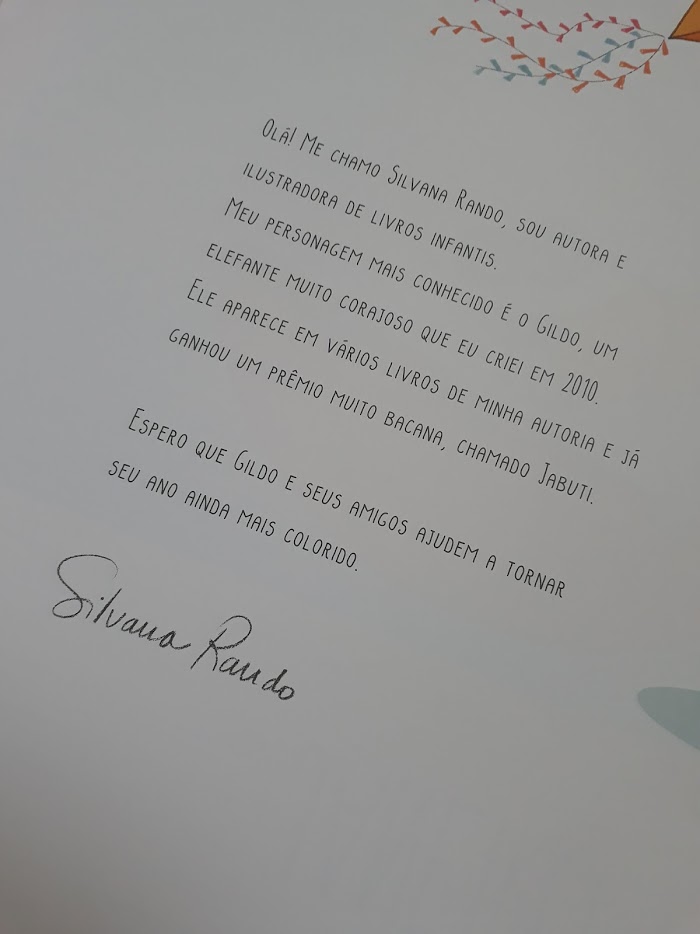 Olá! Me chamo Silvana Rando, sou autora e
ilustradora de livros infantis.
Meu personagem mais conhecido é o Gildo, um
elefante muito corajoso que eu criei em 2010.
Ele aparece em vários livros de minha autoria e já
ganhou um prêmio muito bacana, chamado Jabuti.
Espero que Gildo e seus amigos ajudem a tornar
seu ano ainda mais colorido.
Silvana Rando